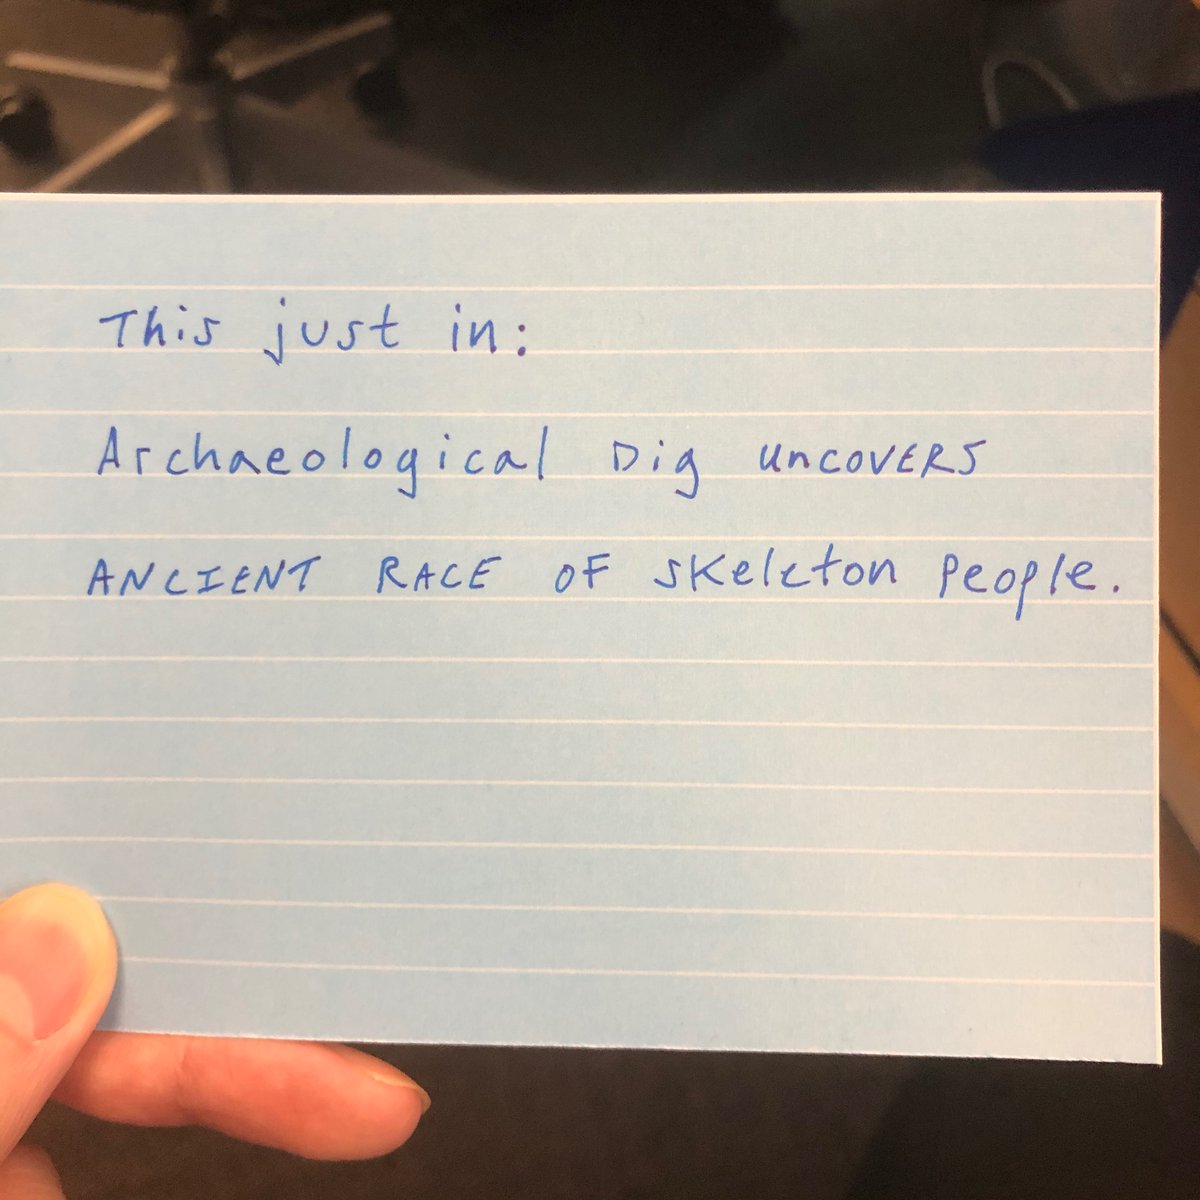 This just in:
Archaeological Dig uncovers
ANCIENT RACE OF skeleton people.